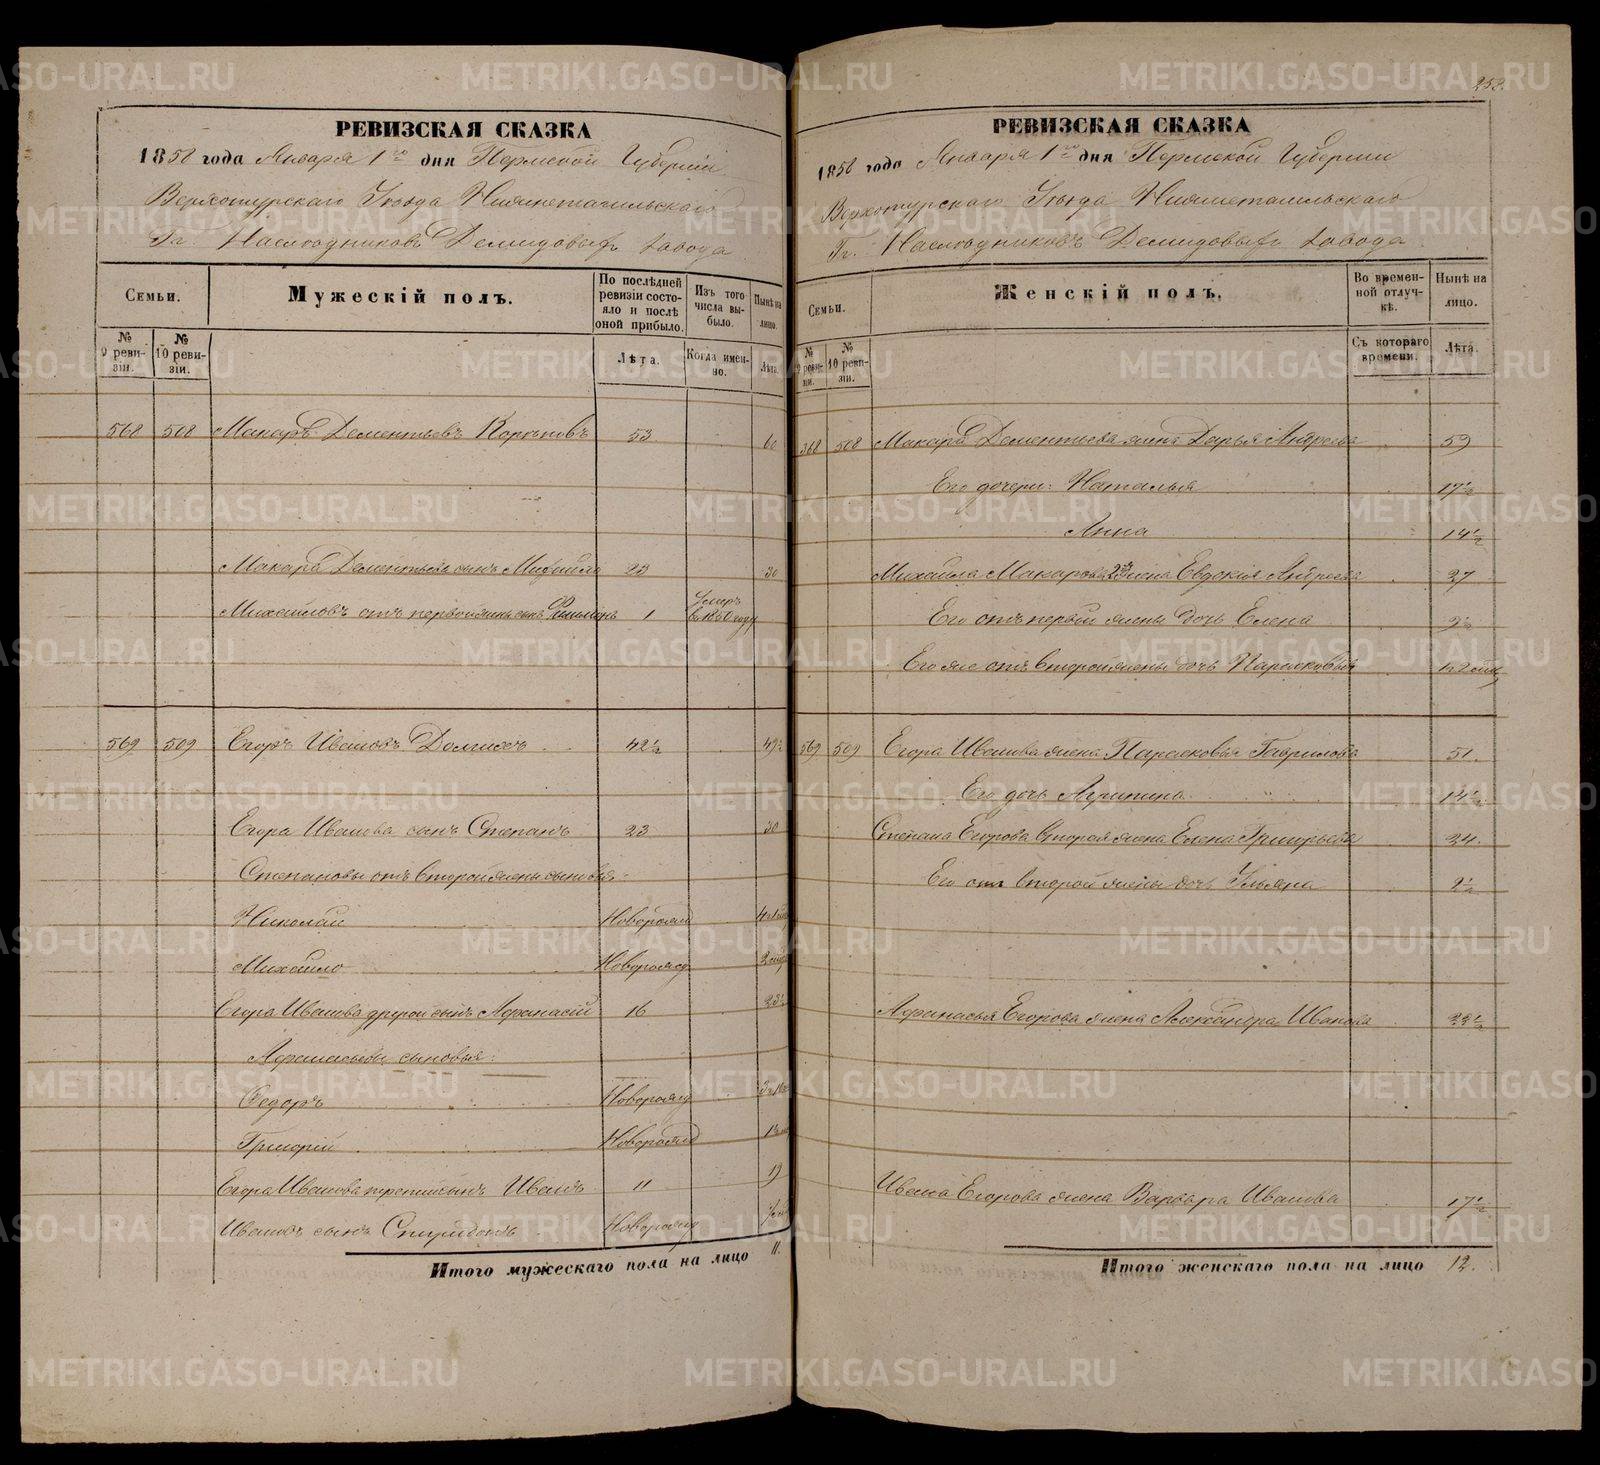 252.
РЕВИЗСКАЯ СКАЗКА
1858 года Января 1го дня Пермской Губерніи
Верхотурскаго Уѣзда Нижнетагильскаго
Гг. Наслѣдниковъ Демидовыхъ завода
Семьи.
Мужескій полъ.
По послѣдней ревизіи состояло и послѣ оной прибыло.
Изъ того числа выбыло.
Нынѣ на лицо.
№ 9 ревизіи.
№ 10 ревизіи.
Лѣта.
Когда именно.
Лѣта.
568 508 Макаръ Дементьевъ 53 60
Макара Дементьева сынъ Михайла 23 30
Михайловъ отъ первой жены сынъ 1 Умеръ въ 1850 году
569 509 Егоръ Ивановъ 42½ 49½
Егора Иванова сынъ Степанъ 23 30
Степановы отъ второй жены сыновья:
Николай Новорожд
Михайло Новорожд
Егора Иванова другой сынъ Афанасій 16 23½
Афанасьевы сыновья:
Федоръ Новорожд
Григорій Новорожд
Егора Иванова третій сынъ Иванъ 11 19
Ивановъ сынъ Спиридонъ Новорожд
Итого мужескаго пола на лицо 11.
РЕВИЗСКАЯ СКАЗКА
1858 года Января 1го дня Пермской Губерніи
Верхотурскаго Уѣзда Нижнетагильскаго
Гг. Наслѣдниковъ Демидовыхъ завода
Семьи.
Женскій полъ.
Во временной отлучкѣ.
Нынѣ на лицо.
№ 9 ревизіи.
№ 10 ревизіи.
Съ котораго времени.
Лѣта.
568 508 Макара Дементьева жена Дарья Андреева 59
Его дочери: Наталья 17½
Анна 14½
Михайла Макарова 2я жена Евдокія Андреева 27
Его отъ первой жены дочь Елена 9½
Его же отъ второй жены дочь Парасковья
569 509 Егора Иванова жена Парасковья Гаврилова 51.
Его дочь Агрипина 14½
Степана Егорова вторая жена Елена Григорьева 24.
Его отъ второй жены дочь Ульяна
Афанасья Егорова жена Александра Иванова 22½
Ивана Егорова жена Варвара Иванова 17½
Итого женскаго пола на лицо 12.
METRIKI.GASO-URAL.RU